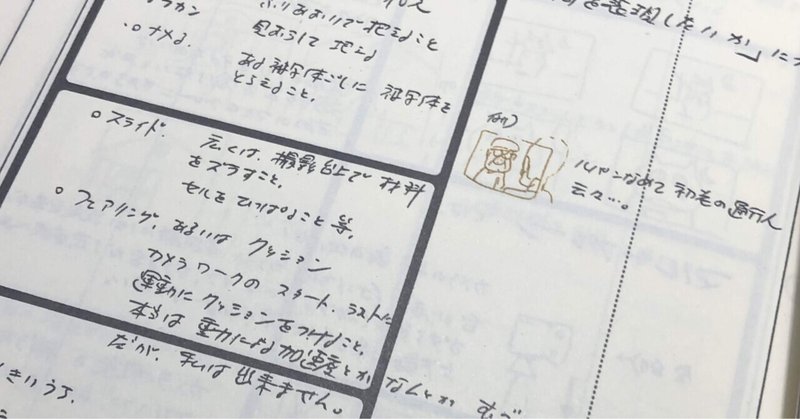 カン ふりあおりで捉えること
見おろして 捉える
○ナメる. ある被写体ごしに 被写体を
とらえること.
○スライド. 広くは、撮影台上で 材料
をズラすこと.
セルを ひっぱること 等.
○フェアリング、あるいは クッション
カメラワークの スタート、ラストに
運動に クッションを つけること.
本当は 重力による 加速度とか なんとか
だが、私は 出来ません。
を表現したいか」に
例)
ルパンなめて 初老の通行人
云々…。